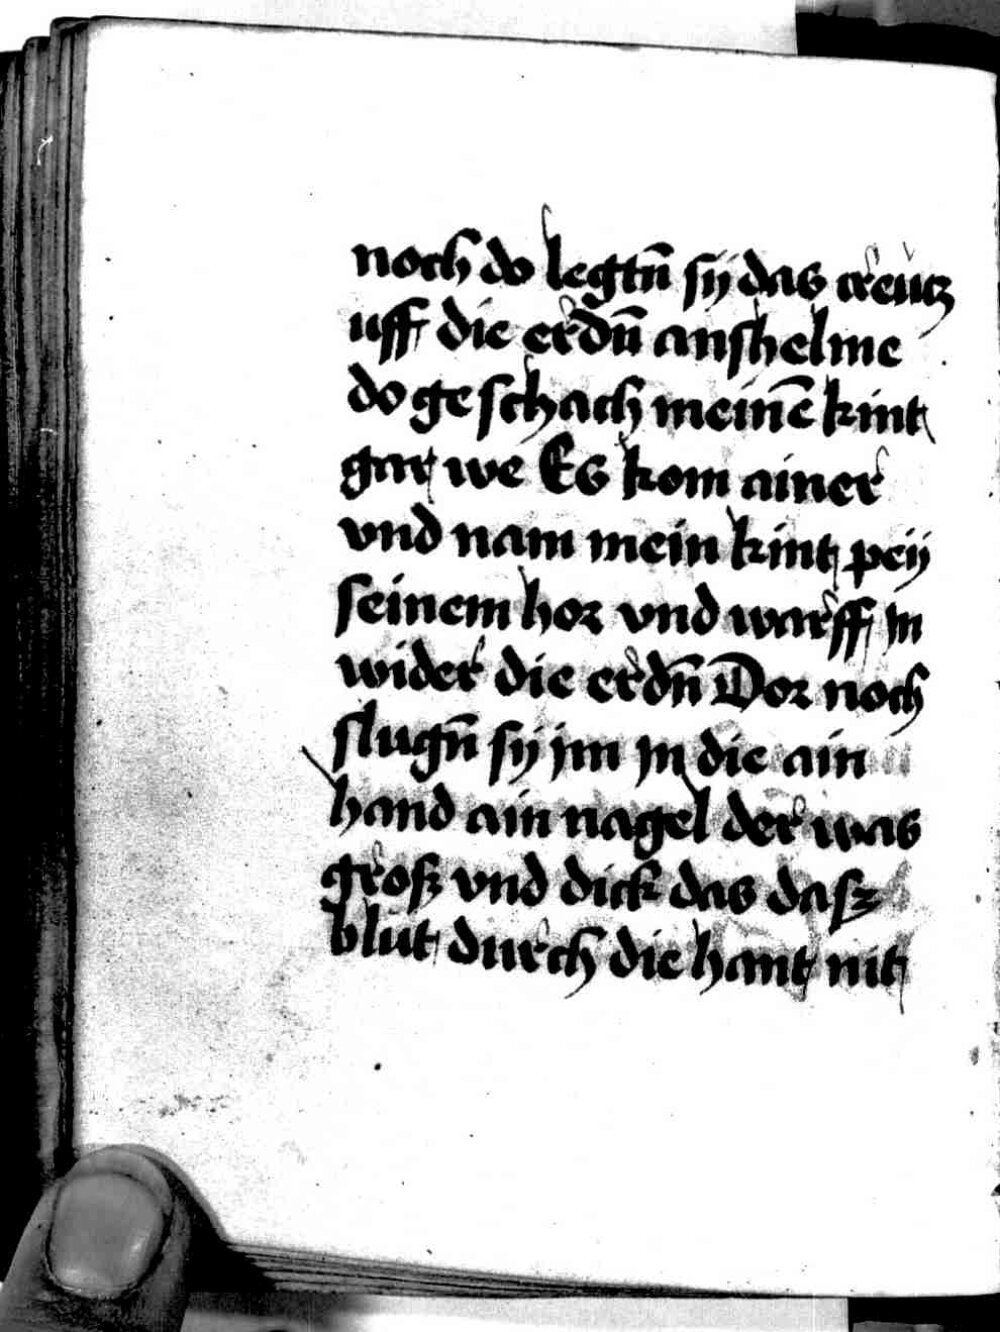 noch do legtn̄ sÿ das creucz
uff die erdn̄ anshelme
do geschach meinē kint
gar we Es kom ainer
vnd nam mein kint peÿ
seinem hor vnd warff in
wider die erdn̄ Dor noch
slugn̄ sÿ jm jn die ain
hand ain nagel der was
groß vnd dick das dasz
blut durch die hant nit